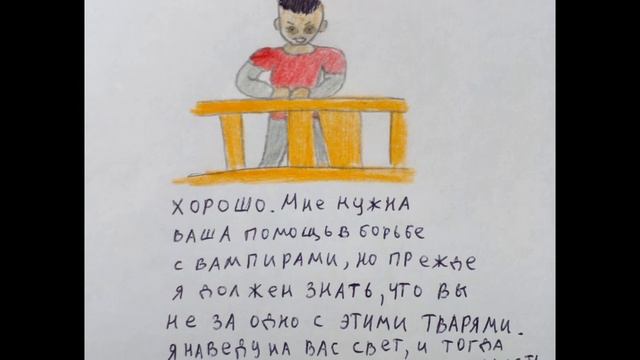 ХОРОШО. МНЕ НУЖНА
ВАША ПОМОЩЬ В БОРЬБЕ
С ВАМПИРАМИ, НО ПРЕЖДЕ
Я ДОЛЖЕН ЗНАТЬ, ЧТО ВЫ
НЕ ЗА ОДНО С ЭТИМИ ТВАРЯМИ.
Я НАВЕДУ НА ВАС СВЕТ, И ТОГДА